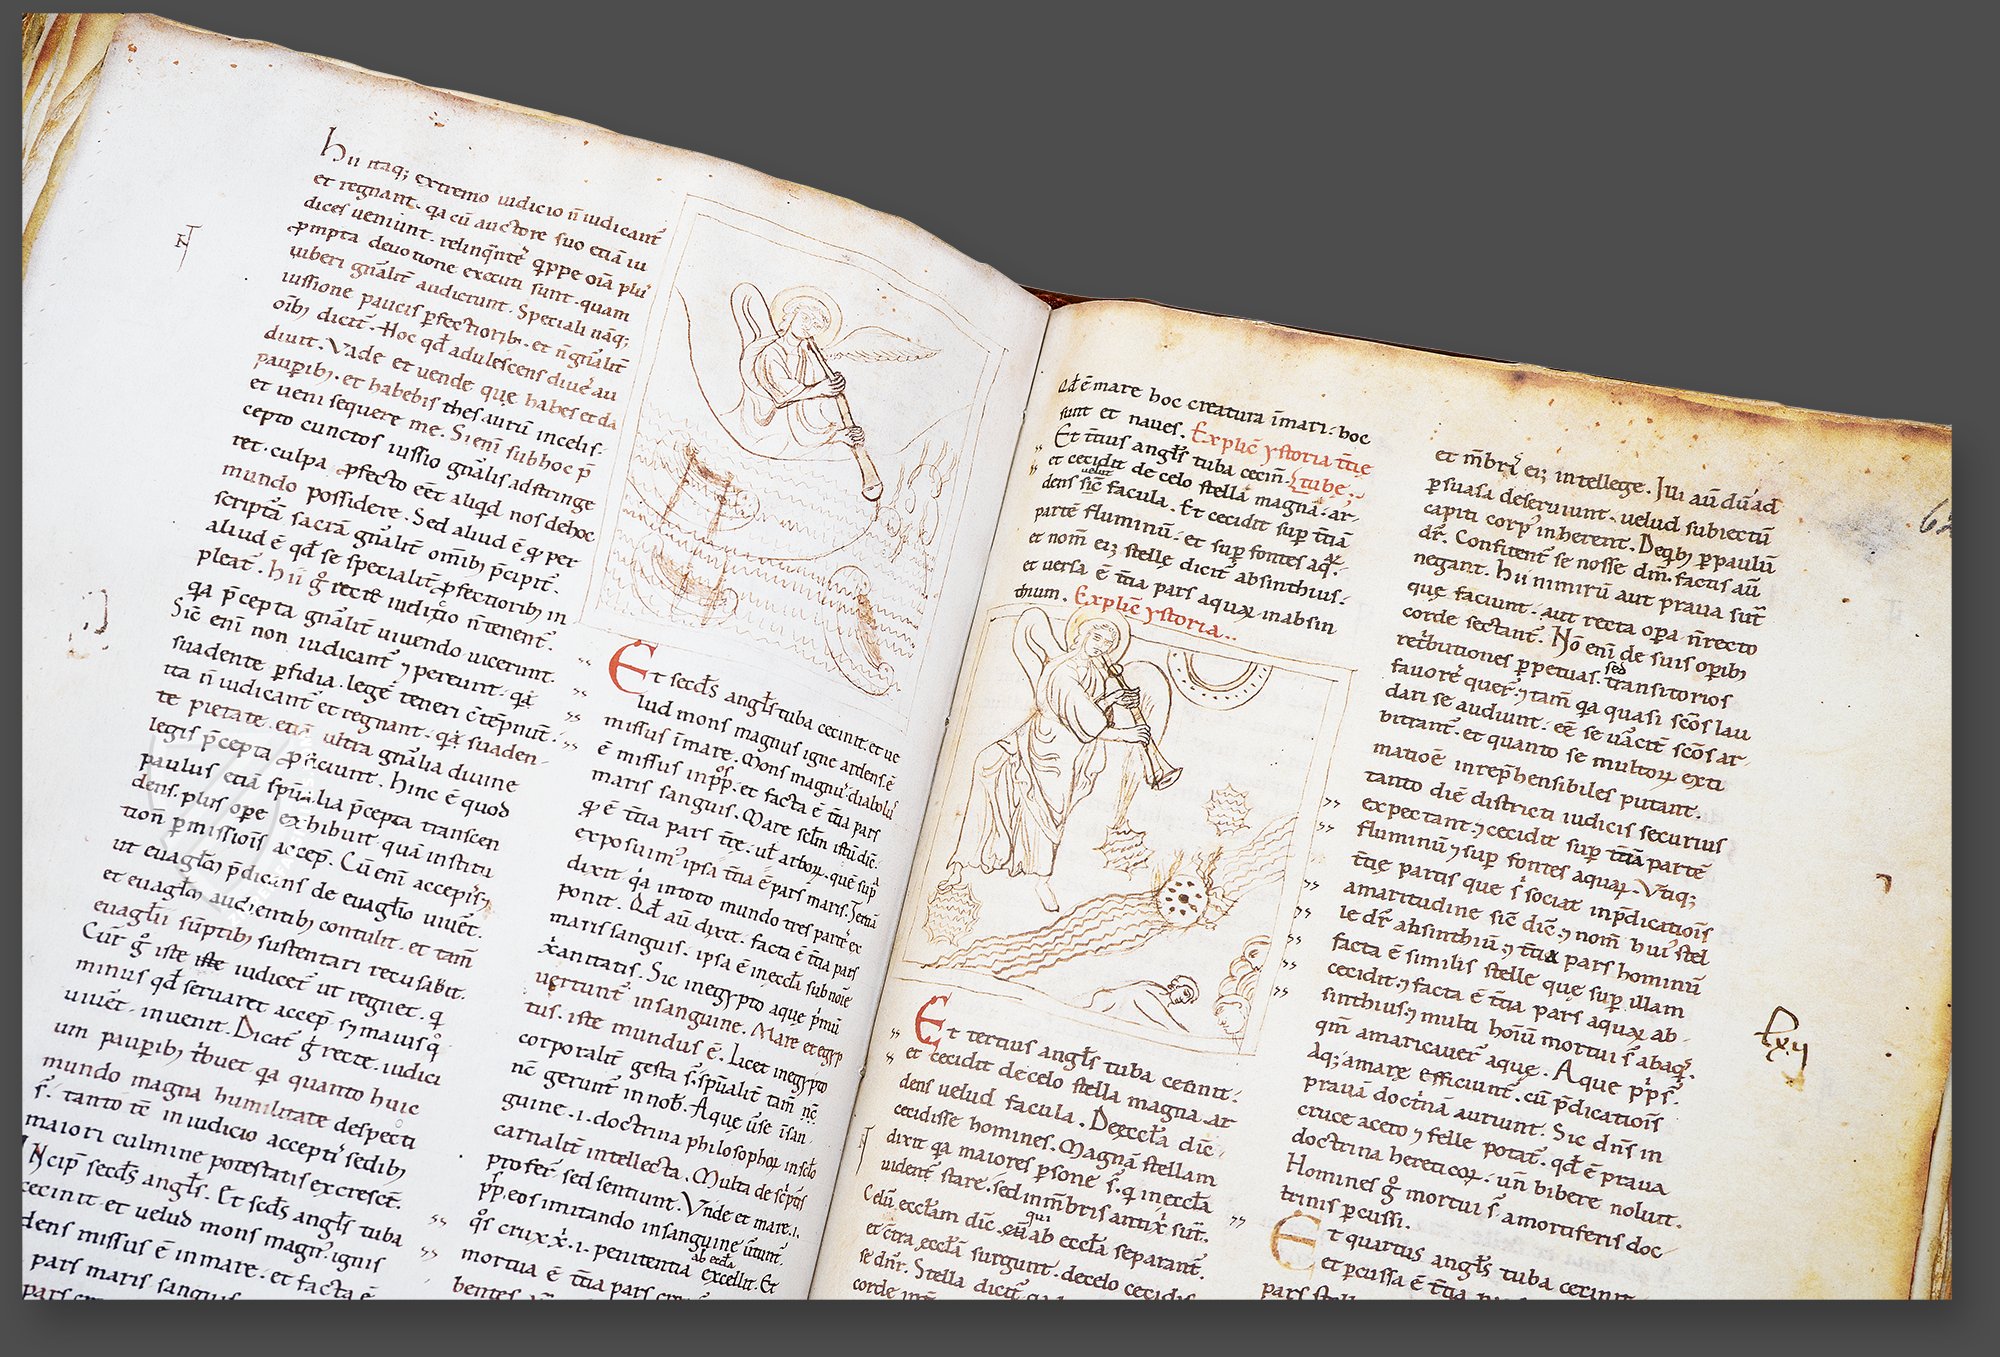 Hii itaq; extremo iudicio n̄ iudicant̄
et regnant. qa cū auctore suo etiā iu
dices ueniunt. relinq̄nteˢ qppe oīa pluˢ
ꝓmpta deuotione executi sunt. quam
iuberi gn̄alit̄ audierunt. Speciali nāq;
iussione paucis ꝑfectiorib; et n̄ gn̄alit̄
oīb; dicit̄. Hoc qd̄ adulescens diueˢ au
diuit. Vade et uende quę habes et da
paupib; et habebis thesaurū incelis.
et ueni sequere me. Si enī subhoc p̄
cepto cunctos iussio gn̄alis adstringe
ret. culpa ꝓfecto eēt aliqd nos dehoc
mundo possidere. Sed aliud ē qꝫ per
scriptā sacrā gn̄alit̄ om̄ib; p̄cipit̄.
aliud ē qd̄ se specialit̄ ꝑfectiorib; in
pleat̄. Hii g̊ recte iudicio n̄ tenent̄.
qa p̄cepta gn̄alit̄ uiuendo uicerunt.
Sic̄ enī non iudicant̄ ⁊ pereunt. qa
suadente ꝑfidia. legē teneri
ita n̄ iudicant̄ et regnant. qa suaden
te pietate. etiā ultra gn̄alia diuine
legis p̄cepta ꝓficiunt. Hinc ē quod
paulus etiā spū̄alia p̄cepta transcen
dens. plus ope exhibuit quā institu
tion̄ pmissiois accep̄. Cū enī accepis&#x73;;
ut euagl̄iū p̄dicans de euagl̄io uiuet̄.
et euagl̄iū audientib; contulit. et tam̄
euagl̄ii sūptib; sustentari recusabit.
Cur̄ g̊ iste iste iudicet̄ ut regnet. q
minus qd̄ seruaret accep̄ sȝ maius q̊
uiuet̄. inuenit. Dicat̄ g̊ recte. iudici
um pauprib; t̄buet qa quanto huic
mundo magna humilitate despecti
s̄. tanto tē in iudicio acceptiˢ sedib;
maiori culmine potestatis excresct̄.
Incip̄ secd̄s angl̄s. Et secd̄s angl̄s tuba
cecinit. et uelud mons magnˢ. ignis
dens missus ē inmare. et facta ē
pars maris sanguis
Et secd̄s angl̄s tuba cecinit. et ue
lud mons magnus igne ardens ē
missus īmare. Mons magnuˢ diabolus
ē missus inpp̄s. et facta ē t̄tia pars
maris sanguis. Mare sclm̄ istū dic̄.
qꝫ ē t̄tia pars tr̄e. ut̄ arborꝝ. quē sup̄
exposuimˢ ipsa t̄tia ē pars maris. Tertiā
dixit qa intoto mundo tres parteˢ ex
ponit. Qd̄ aū dixit. facta ē t̄tia pars
maris sanguis. ipsa ē ineccl̄a sub noīe
xp̄ianitatis. Sic inegypto aque p̄mū
uertunt̄ insanguine. Mare et egyp
tus. iste mundus ē. Licet inegypto
corporalit̄ gesta s̄. spūalit̄ tam̄ nc̄
nc̄ gerunt̄ innob̄. Aque ūse īsan
guine. i. doctrina philosophoꝝ insclō
carnalit̄ intellecta. Multa de sc̄ptis
profert̄ sed sentiunt. Vnde et mare. i.
pp̄. eos imitando insanguine ūtunt̄.
q̊s crux x. i. penitentia ab eccl̄a excellit. Et
mortua ē t̄tia pars
Qd̄ ē mare hoc creatura īmari. hoc
sunt et naues. Explic̄ ystoria t̄tię
Et t̄tius angl̄s tuba cecin̄. tubę.
et cecidit de celo stella magna. ar
dens sic̄ uelut facula. Et cecidit sup t̄tiā
partē fluminū. et sup fontes aqaꝝ.
et nom̄ eiˢ stellę dicit̄ absinthius.
et uersa ē t̄tia pars aquaꝝ inabsin
thium. Explic̄ ystoria..
Et tertius angl̄s tuba cecinit.
et cecidit decelo stella magna. ar
dens uelud facula. Deeccl̄a dic̄
cecidisse homines. Magnā stellam
dixit qa maiores psone s̄. q ineccl̄a
uident̄ stare. sed inm̄bris antix̄ sun̄t.
Celū eccl̄am dic̄. eū qui ab eccl̄a separant̄.
et cōtra eccl̄ā surgunt. decelo cecidis
se dn̄r. Stella dicit̄
et m̄briˢ eiˢ intellege. Illi aū dū ad
ꝑsuasa deseruiunt. uelud subiectū
capiti corpˢ inherent. Deqb; ꝑ paulū
dr̄. Confitent̄ se nosse dm̄. factis aū
negant. Hii nimirū aut praua sūt
quę faciunt. aut recta opa n̄ recto
corde sectant̄. Nō enī de suis opib;
ret̄butiones ꝑpetuas. sed transitorios
fauoreˢ querˢ. ⁊ tam̄ qa quasi sc̄os lau
dari se audiunt. eē se uacit̄ sc̄os ar
bitrant̄. et quanto se multorꝝ exti
matioē inrep̄hensibiles putant.
tanto diē districti iudicis securius
expectant. ⁊ cecidit sup t̄tiā partē
fluminū ⁊ sup fontes aquaꝝ. Vtiq;
t̄tię partis que sˢ sociat inp̄dicatiois
amaritudine sic̄ dic̄. ⁊ nom̄ huiˢ stel
le dr̄ absinthiū. ⁊ t̄tia pars hominū
facta ē similis stelle quę sup illam
cecidit. ⁊ facta ē t̄tia pars aquaꝝ ab
sinthius. ⁊ multi hoīū mortui s̄ abaqˢ.
qm̄ amaricauer̄ aque. Aque pp̄s s̄.
Aq; amare efficiunt̄. cū p̄dicatiois
prauā doctnā auriunt. Sic dn̄s in
cruce aceto ⁊ felle potat̄. qd̄ ē praua
doctrina hereticoꝝ. un̄ bibere noluit.
Homines g̊ mortui s̄. amortiferis doc
trinis ꝑcussi.
Et quartus angl̄s tuba cecinit.
et ꝑcussa ē t̄tia
pars
lxii